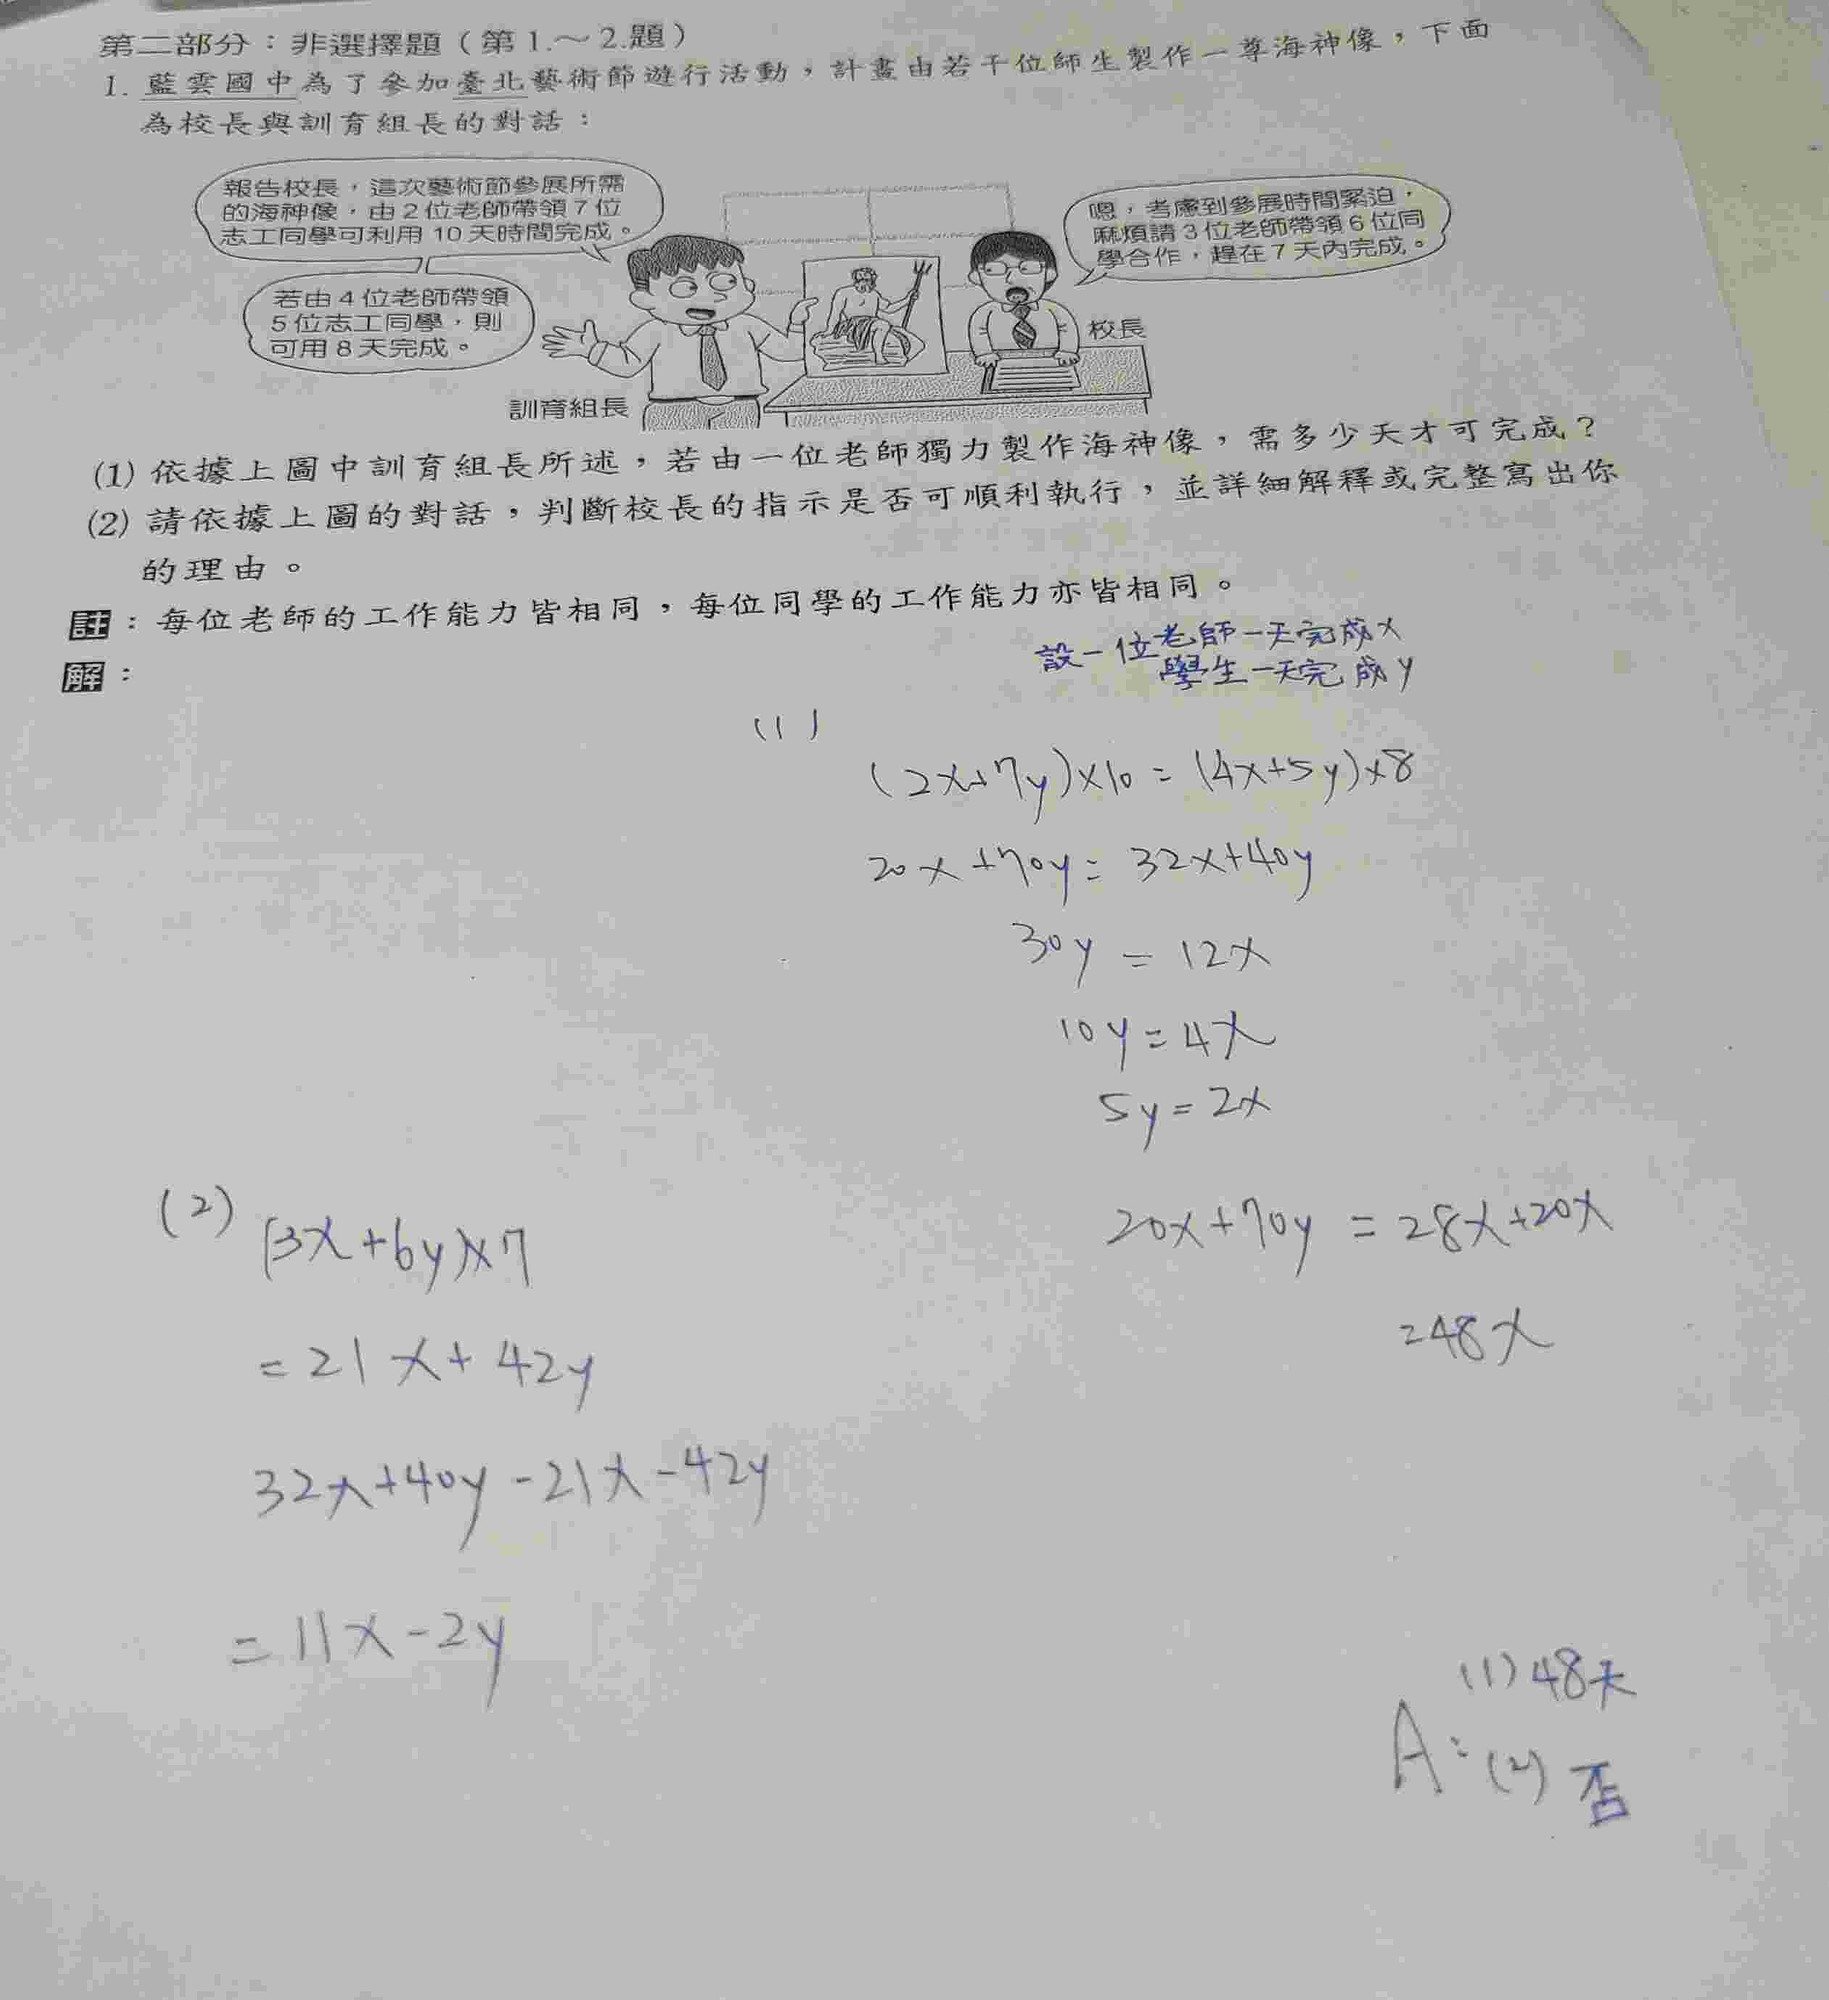 第二部分：非選擇題（第1.～2.題）
1. 藍雲國中為了參加臺北藝術節遊行活動，計畫由若干位師生製作一尊海神像，下面
為校長與訓育組長的對話：
報告校長，這次藝術節參展所需
的海神像，由2位老師帶領7位
志工同學可利用10天時間完成。
若由4位老師帶領
5位志工同學，則
可用8天完成。
嗯，考慮到參展時間緊迫，
麻煩請3位老師帶領6位同
學合作，趕在7天內完成。
校長
訓育組長
(1) 依據上圖中訓育組長所述，若由一位老師獨力製作海神像，需多少天才可完成？
(2) 請依據上圖的對話，判斷校長的指示是否可順利執行，並詳細解釋或完整寫出你
的理由。
註：每位老師的工作能力皆相同，每位同學的工作能力亦皆相同。
解：
設一位老師一天完成x
學生一天完成y
(1)
(2x+7y)×10=(4x+5y)×8
20x+70y=32x+40y
30y=12x
10y=4x
5y=2x
20x+70y=28x+20x
=48x
(2) (3x+6y)×7
=21x+42y
32x+40y-21x-42y
=11x-2y
A: (1) 48天
(2) 否